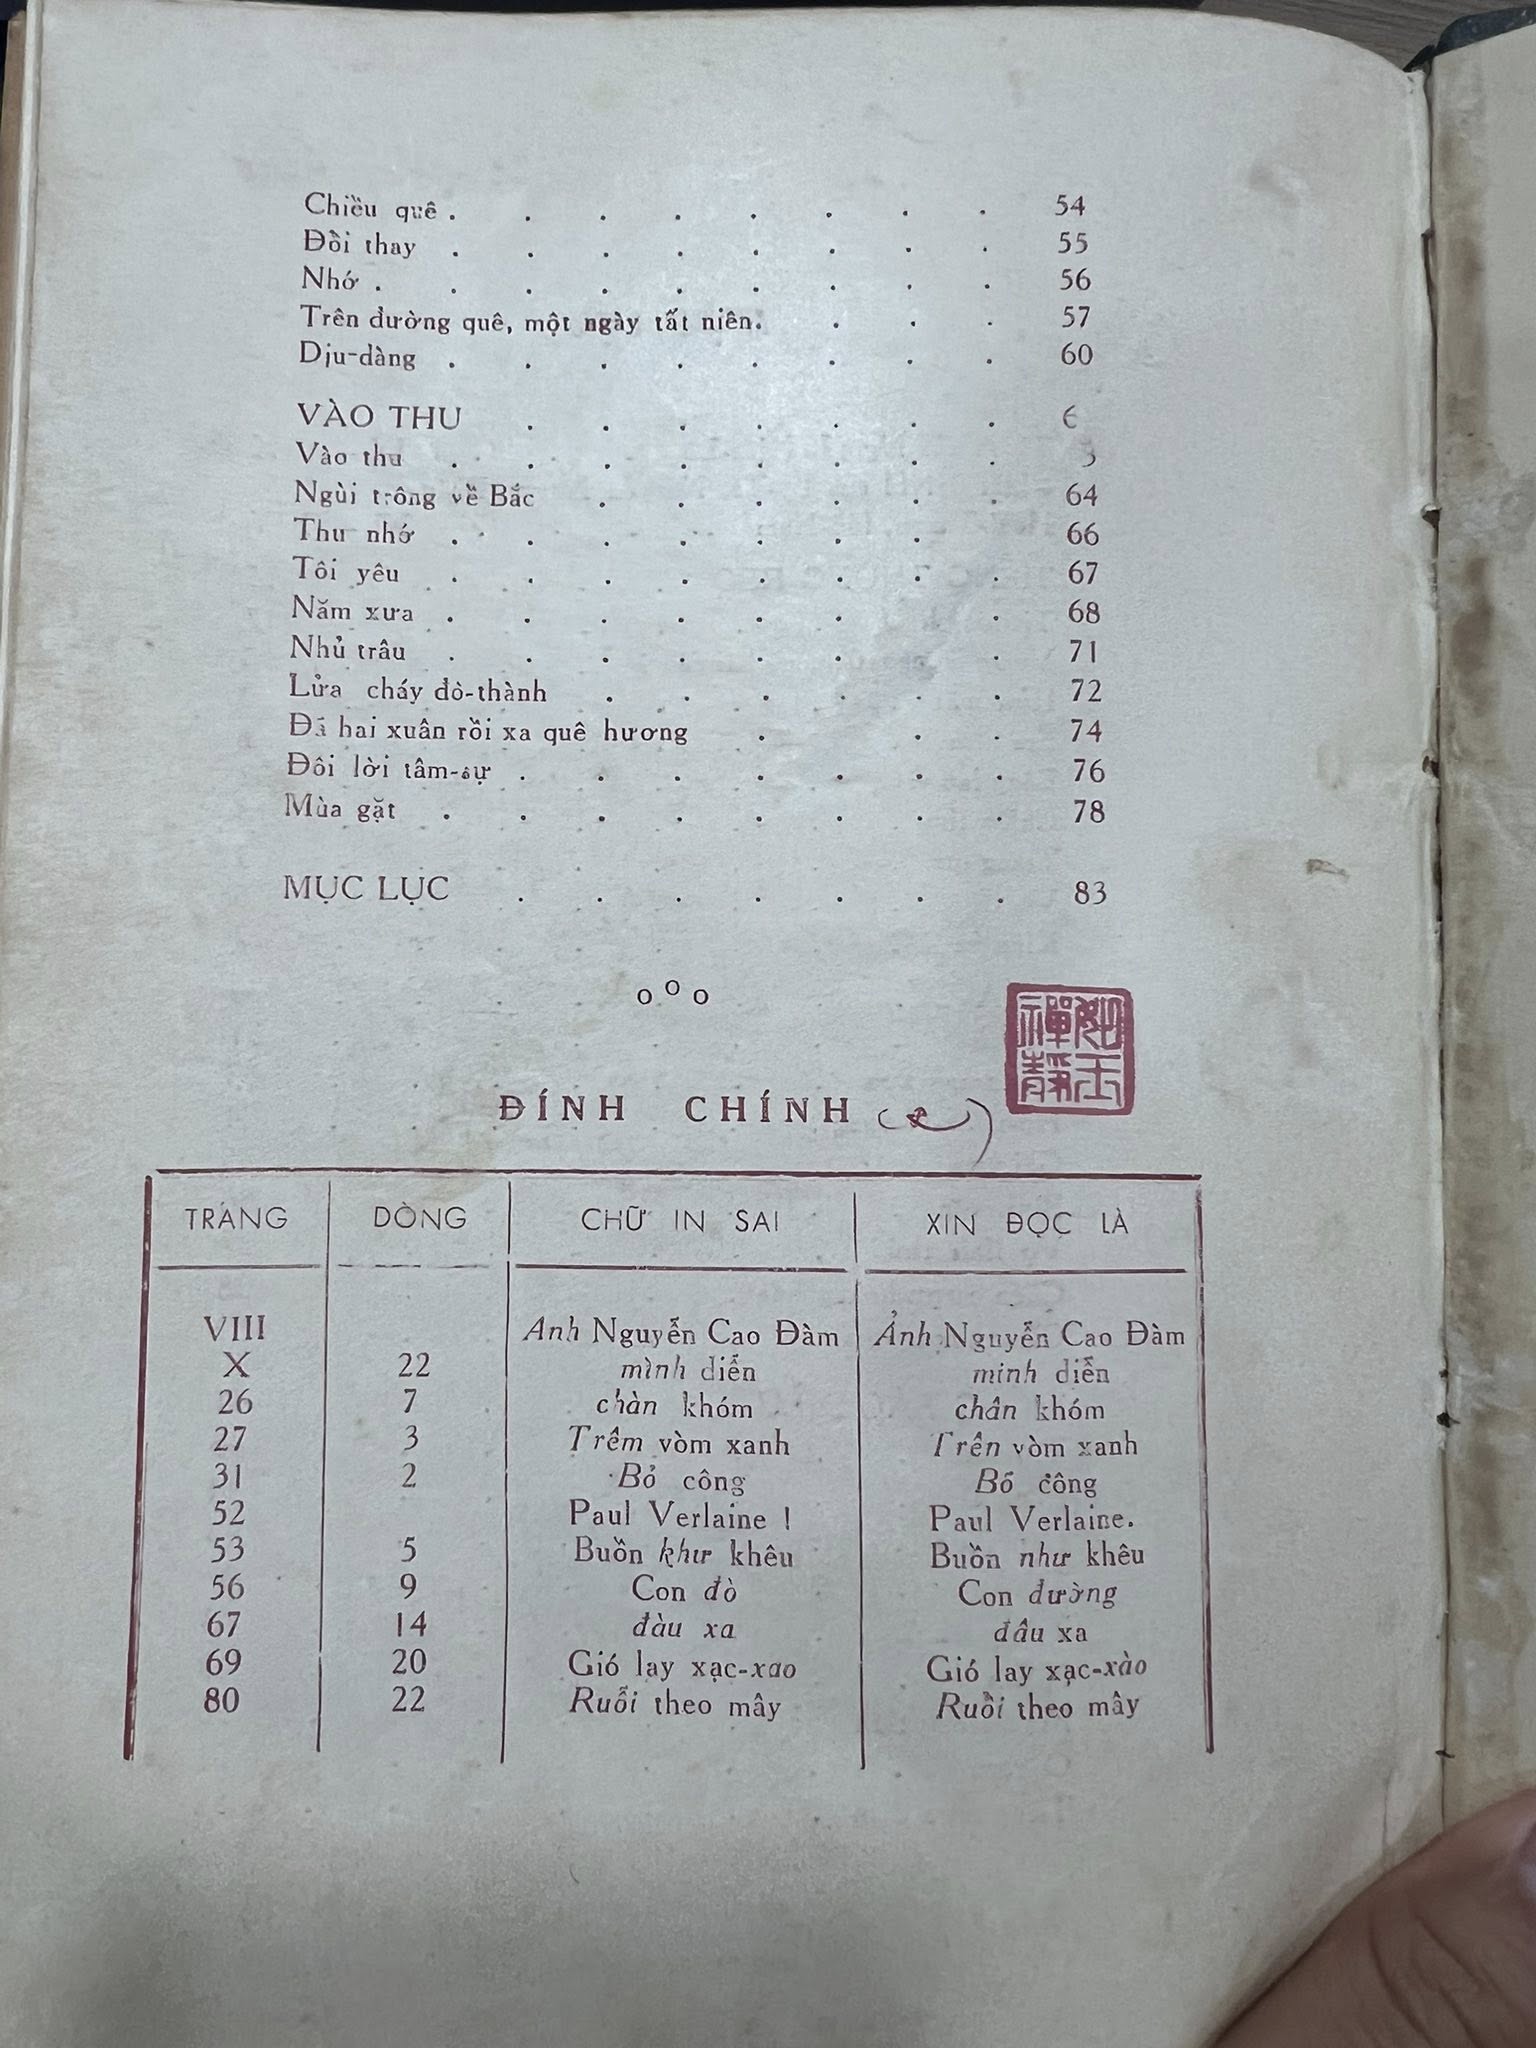 Chiều quê . . . . . . . . 54
Đồi thay . . . . . . . . 55
Nhớ . . . . . . . . . 56
Trên đường quê, một ngày tất niên. . . . 57
Dịu-dàng . . . . . . . . 60
VÀO THU . . . . . . . 6
Vào thu . . . . . . . . 3
Ngùi trông về Bắc . . . . . . 64
Thu nhớ . . . . . . . 66
Tôi yêu . . . . . . . . 67
Năm xưa . . . . . . . 68
Nhủ trâu . . . . . . . 71
Lửa cháy đò-thành . . . . . . 72
Đã hai xuân rồi xa quê hương . . . 74
Đôi lời tâm-sự . . . . . . . 76
Mùa gặt . . . . . . . . 78
MỤC LỤC . . . . . . . 83
o o o
ĐÍNH CHÍNH
TRANG DÒNG CHỮ IN SAI XIN ĐỌC LÀ
VIII Anh Nguyễn Cao Đàm Ảnh Nguyễn Cao Đàm
X 22 mình diễn minh diễn
26 7 chàn khóm chân khóm
27 3 Trêm vòm xanh Trên vòm xanh
31 2 Bỏ công Bồ công
52 Paul Verlaine ! Paul Verlaine.
53 5 Buồn khư khêu Buồn như khêu
56 9 Con đò Con đường
67 14 đàu xa đâu xa
69 20 Gió lay xạc-xao Gió lay xạc-xào
80 22 Ruỗi theo mây Ruồi theo mây